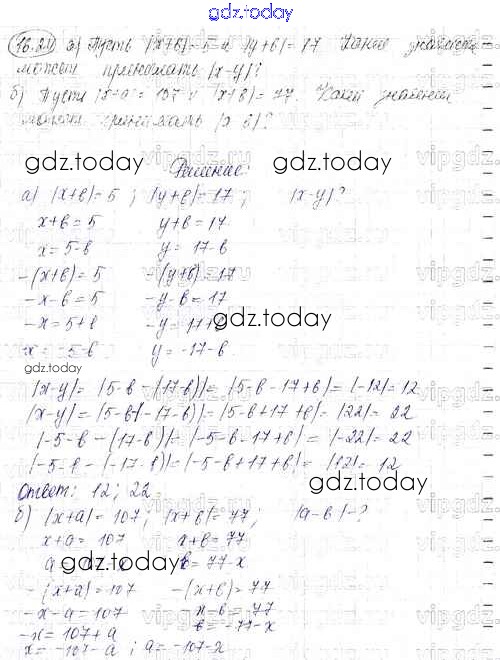 gdz.today
16.24 а) Пусть |x+b|=5 и |y+b|=17 Какие значения
может принимать |x-y|?
б) Пусть |x+a|=107 и |x+b|=77. Какие значения
может принимать
gdz.today vipgdz
Решение:
а) |x+b|=5; |y+b|=17; |x-y|?
x+b=5 y+b=17
x=5-b y=17-b
-(x+b)=5 -(y+b)=17
-x-b=5 -y-b=17
-x=5+b -y=17+b
gdz.today
x=-5-b y=-17-b
|x-y|=|5-b-(17-b)|=|5-b-17+b|=|-12|=12
|x-y|=|5-b-(-17-b)|=|5-b+17+b|=|22|=22
|-5-b-(17-b)|=|-5-b-17+b|=|-22|=22
|-5-b-(-17-b)|=|-5-b+17+b|=|12|=12
gdz.today
Ответ: 12; 22
б) |x+a|=107; |x+b|=77; |a-b|-?
x+a=107 x+b=77
gdz.today b=77-x
-(x+a)=107 -(x+b)=77
-x-a=107 =77
-x=107+a b=-77-x
x=-107-a; a=-107-x